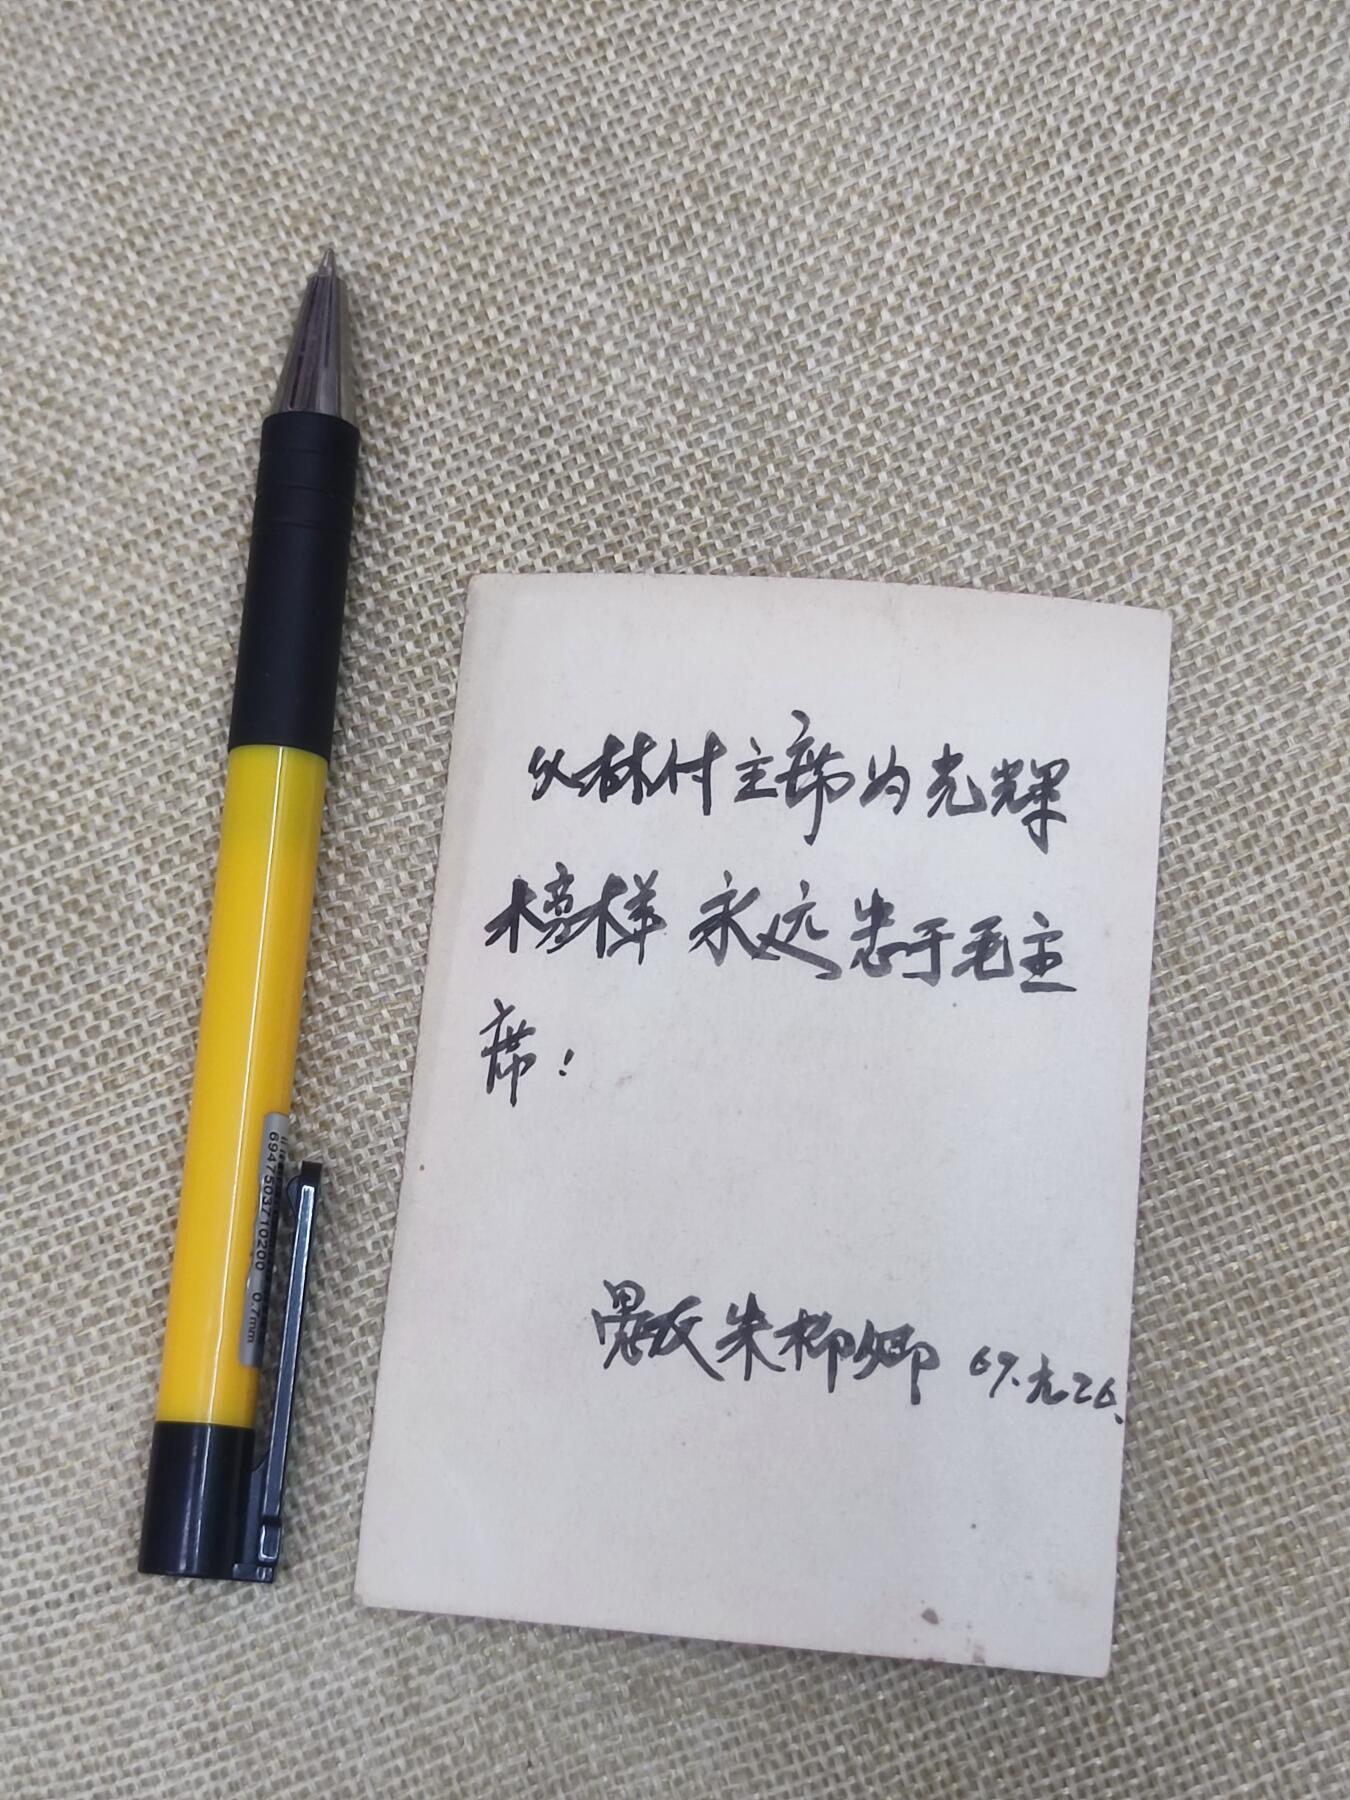 以林付主席为光辉
榜样 永远忠于毛主
席!
朱柳卿 69.元.26.
6947503710200 0.7mm